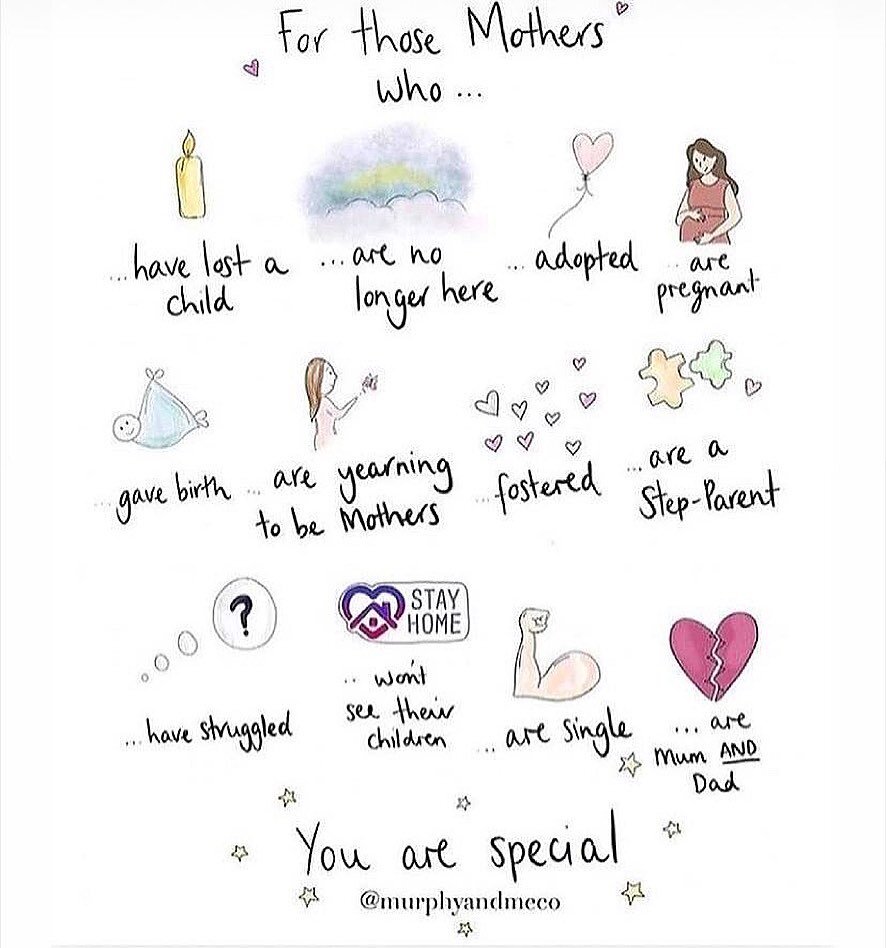 For those Mothers
who ...
...have lost a
child
... are no
longer here
... adopted
.. are
pregnant
... gave birth
... are yearning
to be Mothers
... fostered
... are a
Step-Parent
?
STAY
HOME
...have struggled
.. won't
see their
children
... are single
... are
Mum AND
Dad
You are special
@murphyandmeco